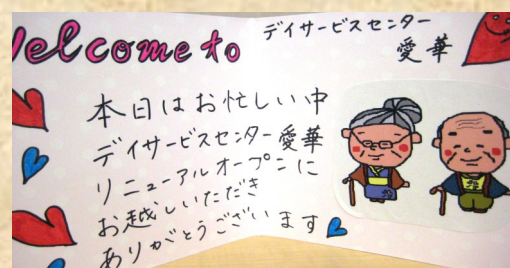 Welcome to
デイサービスセンター
愛華
本日はお忙しい中
デイサービスセンター愛華
リニューアルオープンに
お越しいただき
ありがとうございます